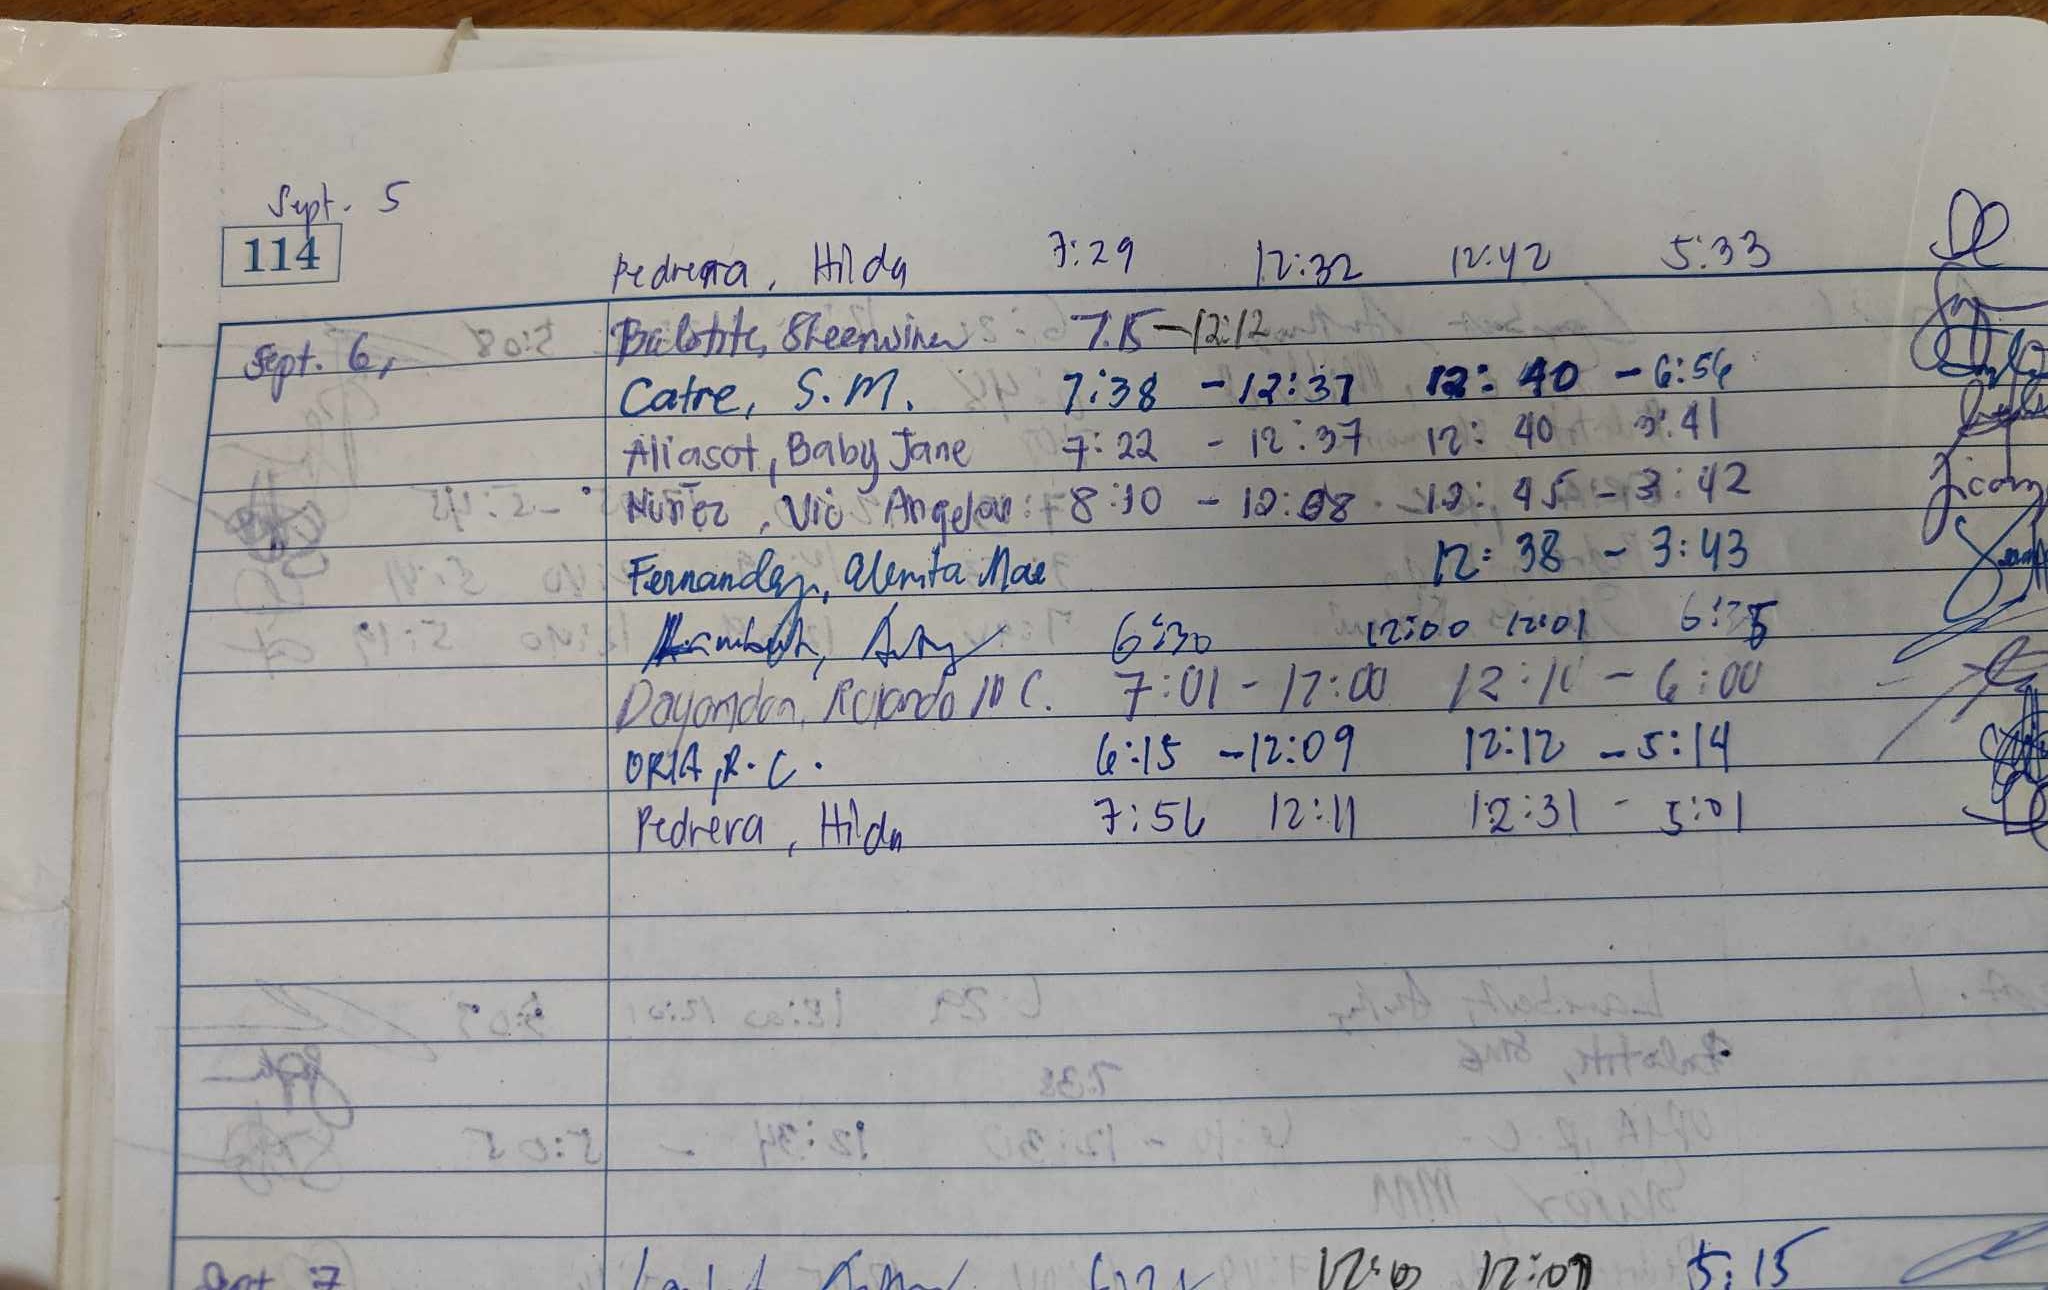 Sept. 5
114
Pedrera, Hilda 7:29 12:32 12:42 5:33
Sept. 6, Balotite, Sheenwinen 7.15 - 12:12
Catre, S.M. 7:38 - 12:37 12:40 - 6:56
Aliasot, Baby Jane 7:22 - 12:37 12:40 3:41
Nuñez, Vic Angelou: 8:10 - 12:08 12:45 - 3:42
Fernandez, Mae 12:38 - 3:43
6:30 12:00 12:01
Dayandan, Rolando C. 7:01 - 12:00 12:10 - 6:00
ORIA, R.C. 6:15 - 12:09 12:12 - 5:14
Pedrera, Hilda 7:56 12:11 12:31 - 5:01
Sept 7 5:15